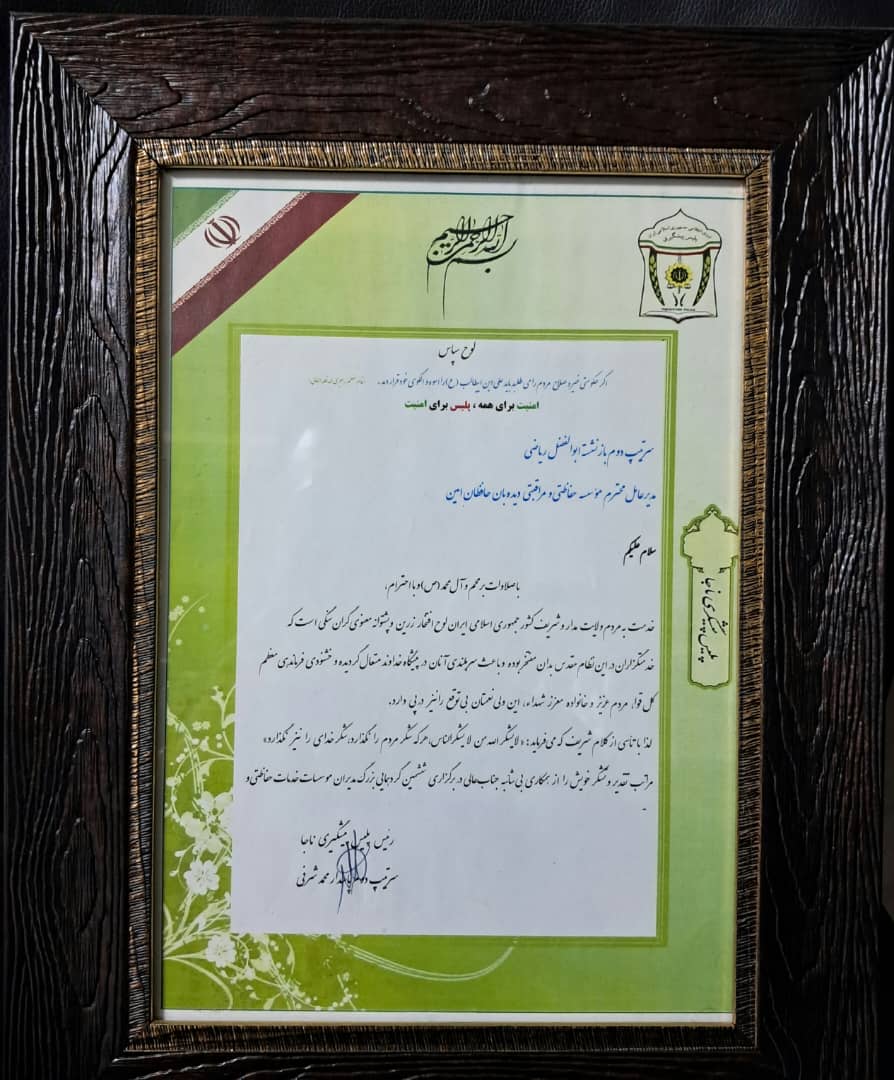 بسم الله الرحمن الرحیم
نیروی انتظامی جمهوری اسلامی ایران
پلیس پیشگیری
لوح سپاس
اگر حکومتی خیر و صلاح مردم را می طلبد باید علی ابن ابیطالب (ع) را اسوه و الگوی خود قرار دهد.
امنیت برای همه ، پلیس برای امنیت
سرتیپ دوم بازنشسته ابوالفضل ریاضی
مدیرعامل محترم مؤسسه حفاظتی و مراقبتی دیده بان حافظان امین
سلام علیکم
با صلوات بر محمد و آل محمد (ص) و با احترام ،
خدمت به مردم ولایت مدار و شریف کشور جمهوری اسلامی ایران لوح افتخار زرین و پشتوانه معنوی گران سنگی است که
خدمتگزاران در این نظام مقدس بدان مفتخر بوده و باعث سربلندی آنان در پیشگاه خداوند متعال گردیده و خشنودی فرماندهی معظم
کل قوا، مردم عزیز و خانواده معزز شهداء، این ولی نعمتان بی توقع را نیز در پی دارد.
لذا با تأسی از کلام شریف که می فرماید: « لایشکر الله من لایشکر الناس، هر که شکر مردم را نگذارد، شکر خدای را نیز نگذارد»
مراتب تقدیر و تشکر خویش را از همکاری بی شائبه جنابعالی در برگزاری ششمین گردهمایی بزرگ مدیران موسسات خدمات حفاظتی و
رئیس پلیس پیشگیری ناجا
سرتیپ دوم پاسدار محمد شرفی
پلیس پیشگیری ناجا